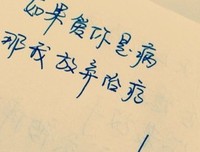 如果爱你是病
那我放弃治疗